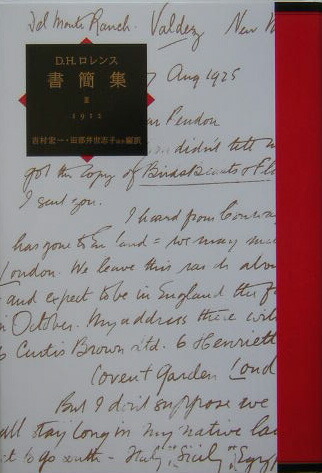 Del Monte Ranch. Valdez New M
D.H.ロレンス
書簡集
Ⅲ
1912
吉村宏一・田部井世志子ほか編訳
7 Aug 1925
Pendon
didn't tell
got the copy of Birds Beasts & Fl
I sent you.
I heard from Conway
has gone to En land = we may
London. We leave this ranch abou
and expect to be in England the f
in October. My address there will
Curtis Brown Ltd. 6 Henriett
Covent Garden Lond
But I don't suppose we
all stay long in my native la
to go south - Italy, Sicily, Egyp